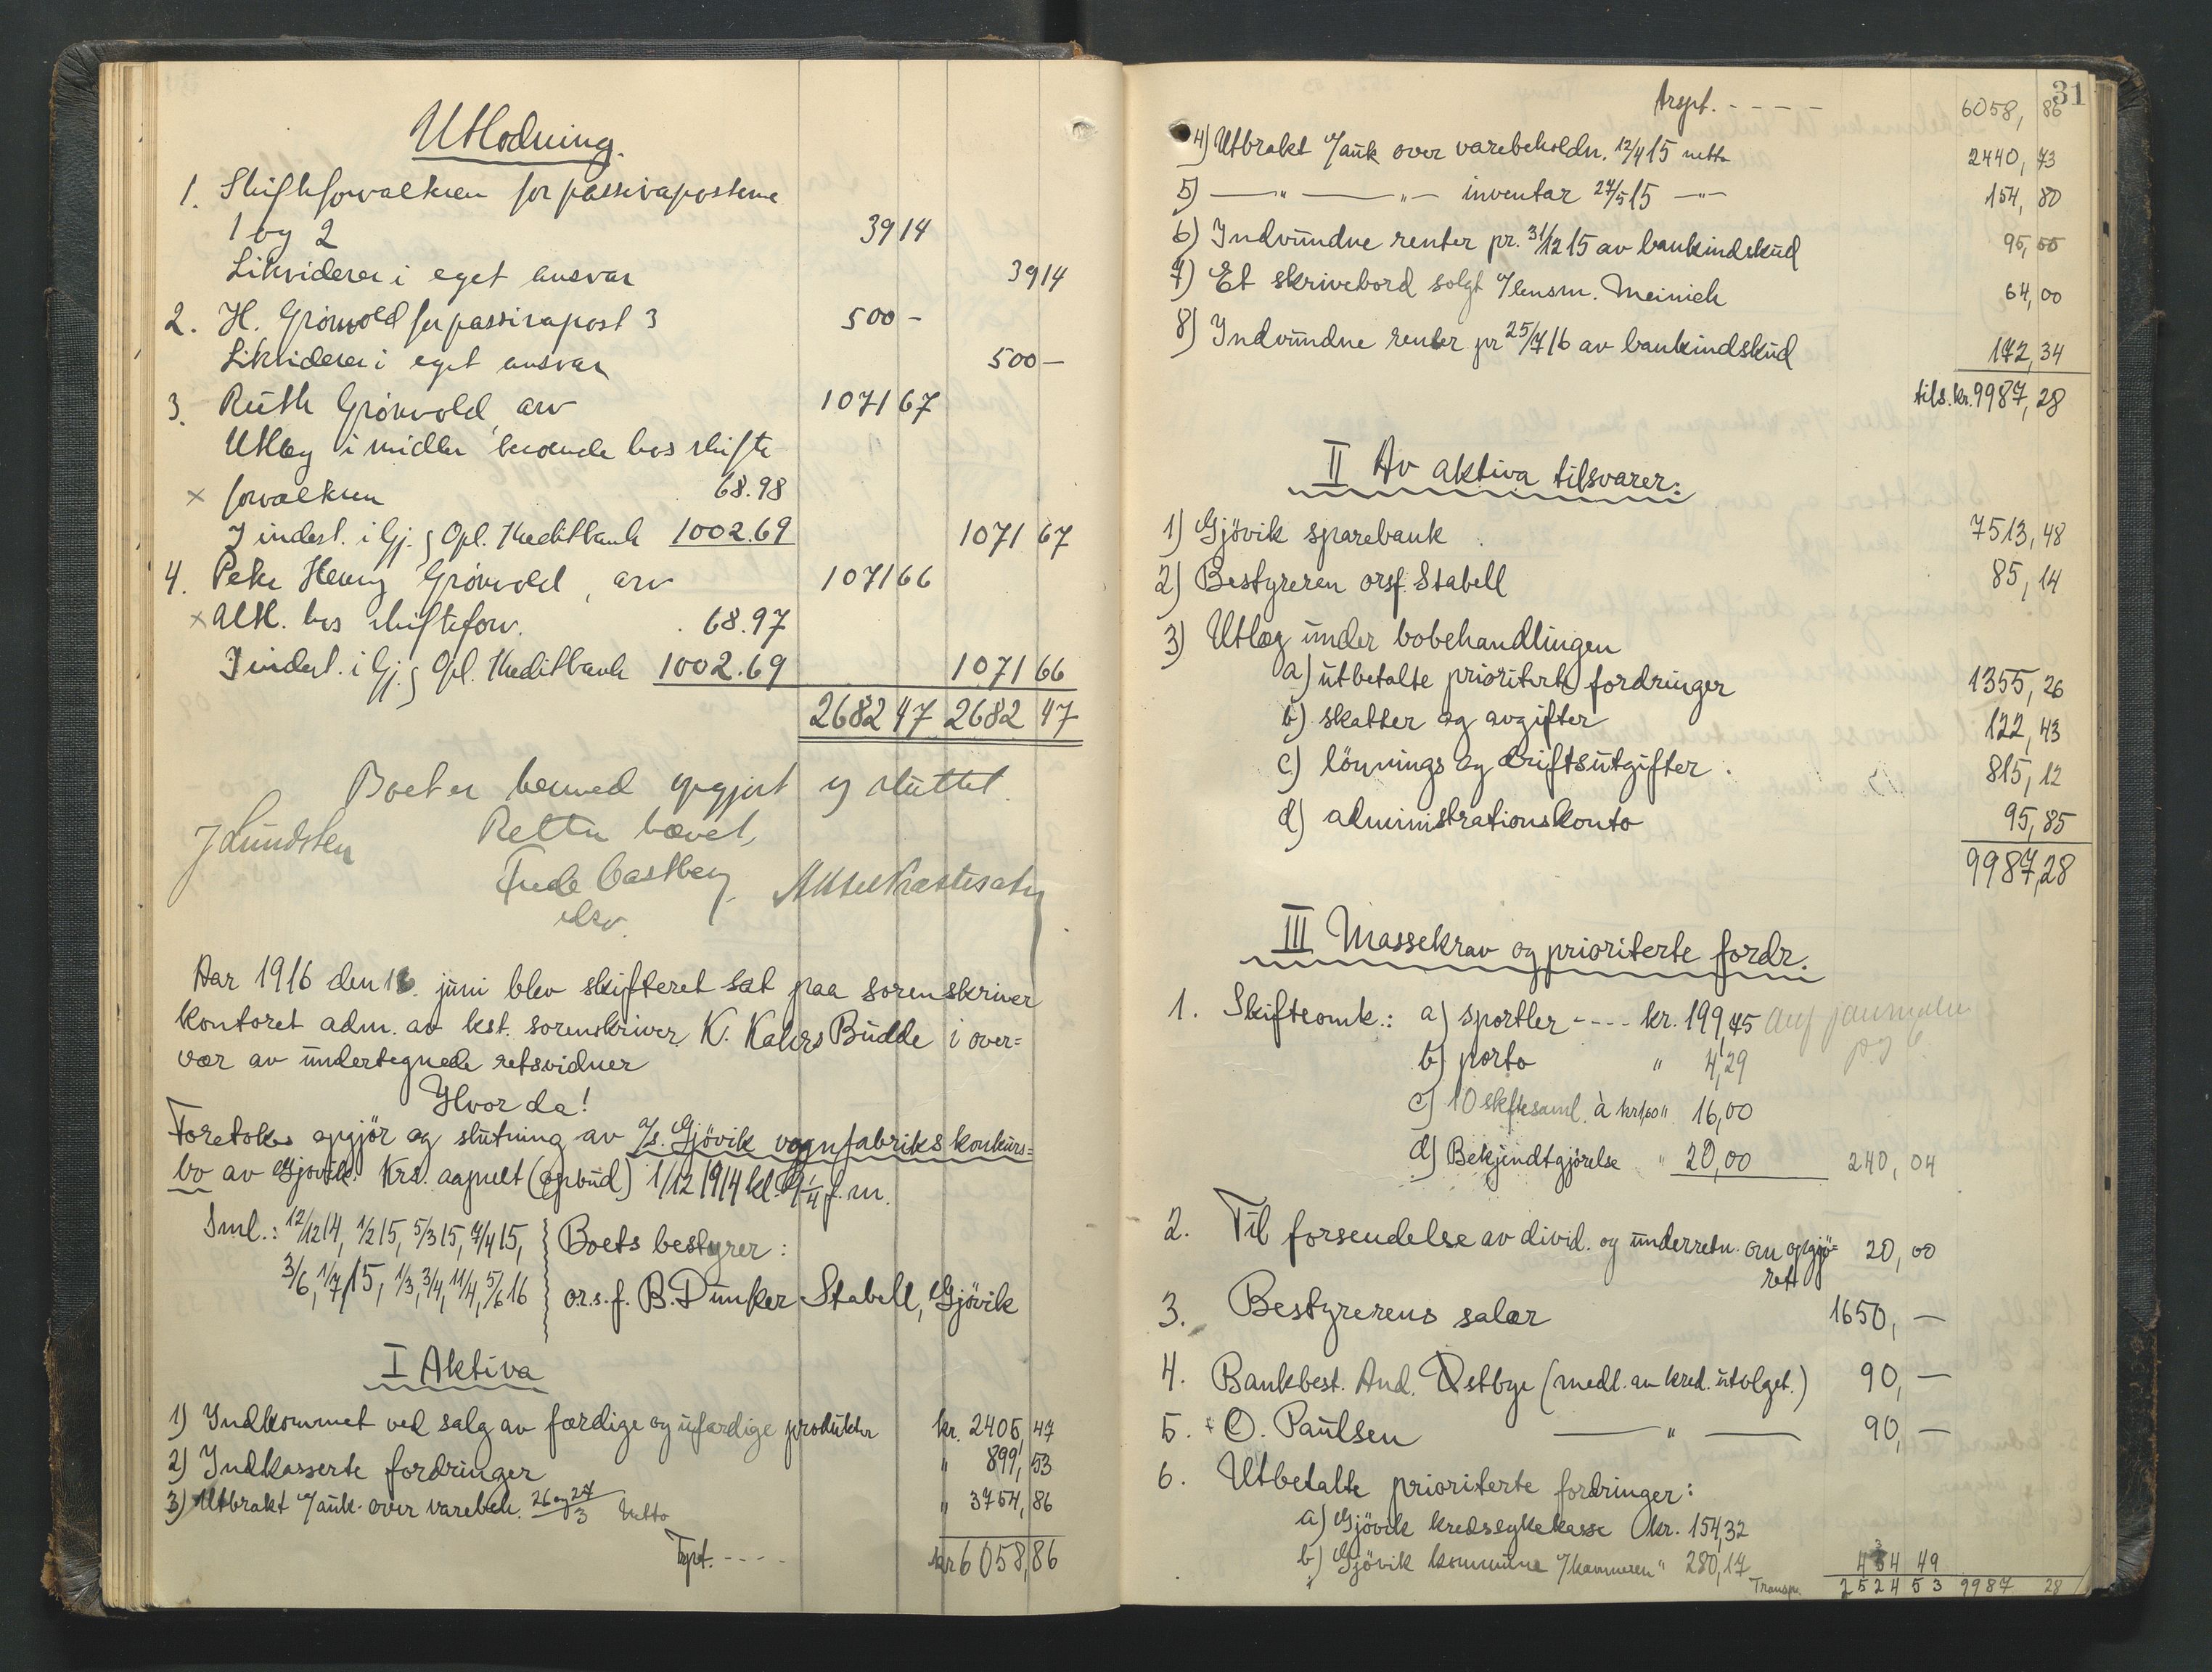 Utlodning.
1. Skifteforvalteren for passivaposterne
1 og 2 39 14
Likviderer i eget ansvar 39 14
2. H. Grönvold for passivapost 3 500 -
Likviderer i eget ansvar 500 -
3. Ruth Grönvold, arv 1071 67
Utlæg i midler beroende hos skifte-
x forvalteren 68.98
I indest. i Gj. & Opl. Kreditbank 1002.69 1071 67
4. Peter Henry Grönvold, arv 1071 66
x Utl. hos skifteforv. 68.97
I indest. i Gj. & Opl. Kreditbank 1002.69 1071 66
2682 47 2682 47
Boet er hermed opgjort og sluttet.
Retten hævet,
J Lundsten Frede Castberg
Aar 1916 den 16. juni blev skifteret sat paa sorenskriver
kontoret adm. av kst. sorenskriver K. Kahrs Budde i over=
vær av undertegnede retsvidner
Hvor da!
Foretokes opgjör og slutning av A/s. Gjövik vognfabriks konkurs=
bo av Gjövik. Krs. aapnet (opbud) 1/12 1914 kl. 9 1/4 f.m.
Sml.: 12/12 14, 1/2 15, 5/3 15, 7/4 15,
3/6, 1/7 15, 1/3, 3/4, 11/4, 5/6 16
Boets bestyrer:
o.r.s.f. B. Dunker Stabell, Gjövik
I Aktiva
1) Indkommet ved salg av færdige og ufærdige produkter kr. 2405, 47
2) Indkasserte fordringer " 899, 53
3) Utbrakt v/auk. over vareb. 26 og 27/3 netto " 3754, 86
Trpt. ---- kr 6058, 86
31
Trspt. ---- 6058, 86
4) Utbrakt v/auk over varebeholdn. 12/4 15 netto 2440, 73
5) —"— —"— inventar 27/5 15 —"— 154, 80
6) Indvundne renter pr. 31/12 15 av bankindskud 95, 55
7) Et skrivebord solgt v/lensm. Meinich 64, 00
8) Indvundne renter pr 25/7 16 av bankindskud 172, 34
tils. kr. 9987, 28
II Av aktiva tilsvarer:
1) Gjövik sparebank 7513, 48
2) Bestyreren orsf. Stabell 85, 14
3) Utlæg under bobehandlingen
a) utbetalte prioriterte fordringer 1355, 26
b) skatter og avgifter 122, 43
c) lönnings og driftsutgifter 815, 12
d) administrationskonto 95, 85
9987, 28
III Massekrav og prioriterte fordr.
1. Skifteomk.: a) sportler ---- kr. 199,75
b) porto " 4,29
c) 10 skiftesaml. à kr 1,60 " 16,00
d) Bekjendtgjörelse " 20,00 240, 04
2. Til forsendelse av divid. og underretn. om opgjö= 20, 00
ret
3. Bestyrerens salær 1650, —
4. Bankbest. And. Östbye (medl. av kred. utvalget.) 90, —
5. O. Paulsen —"— 90, —
6. Utbetalte prioriterte fordringer:
a) Gjövik kredssykekasse kr. 154,32
b) Gjövik kommune v/kæmneren " 280,17 434 49
Transp. 2524 53 9987 28